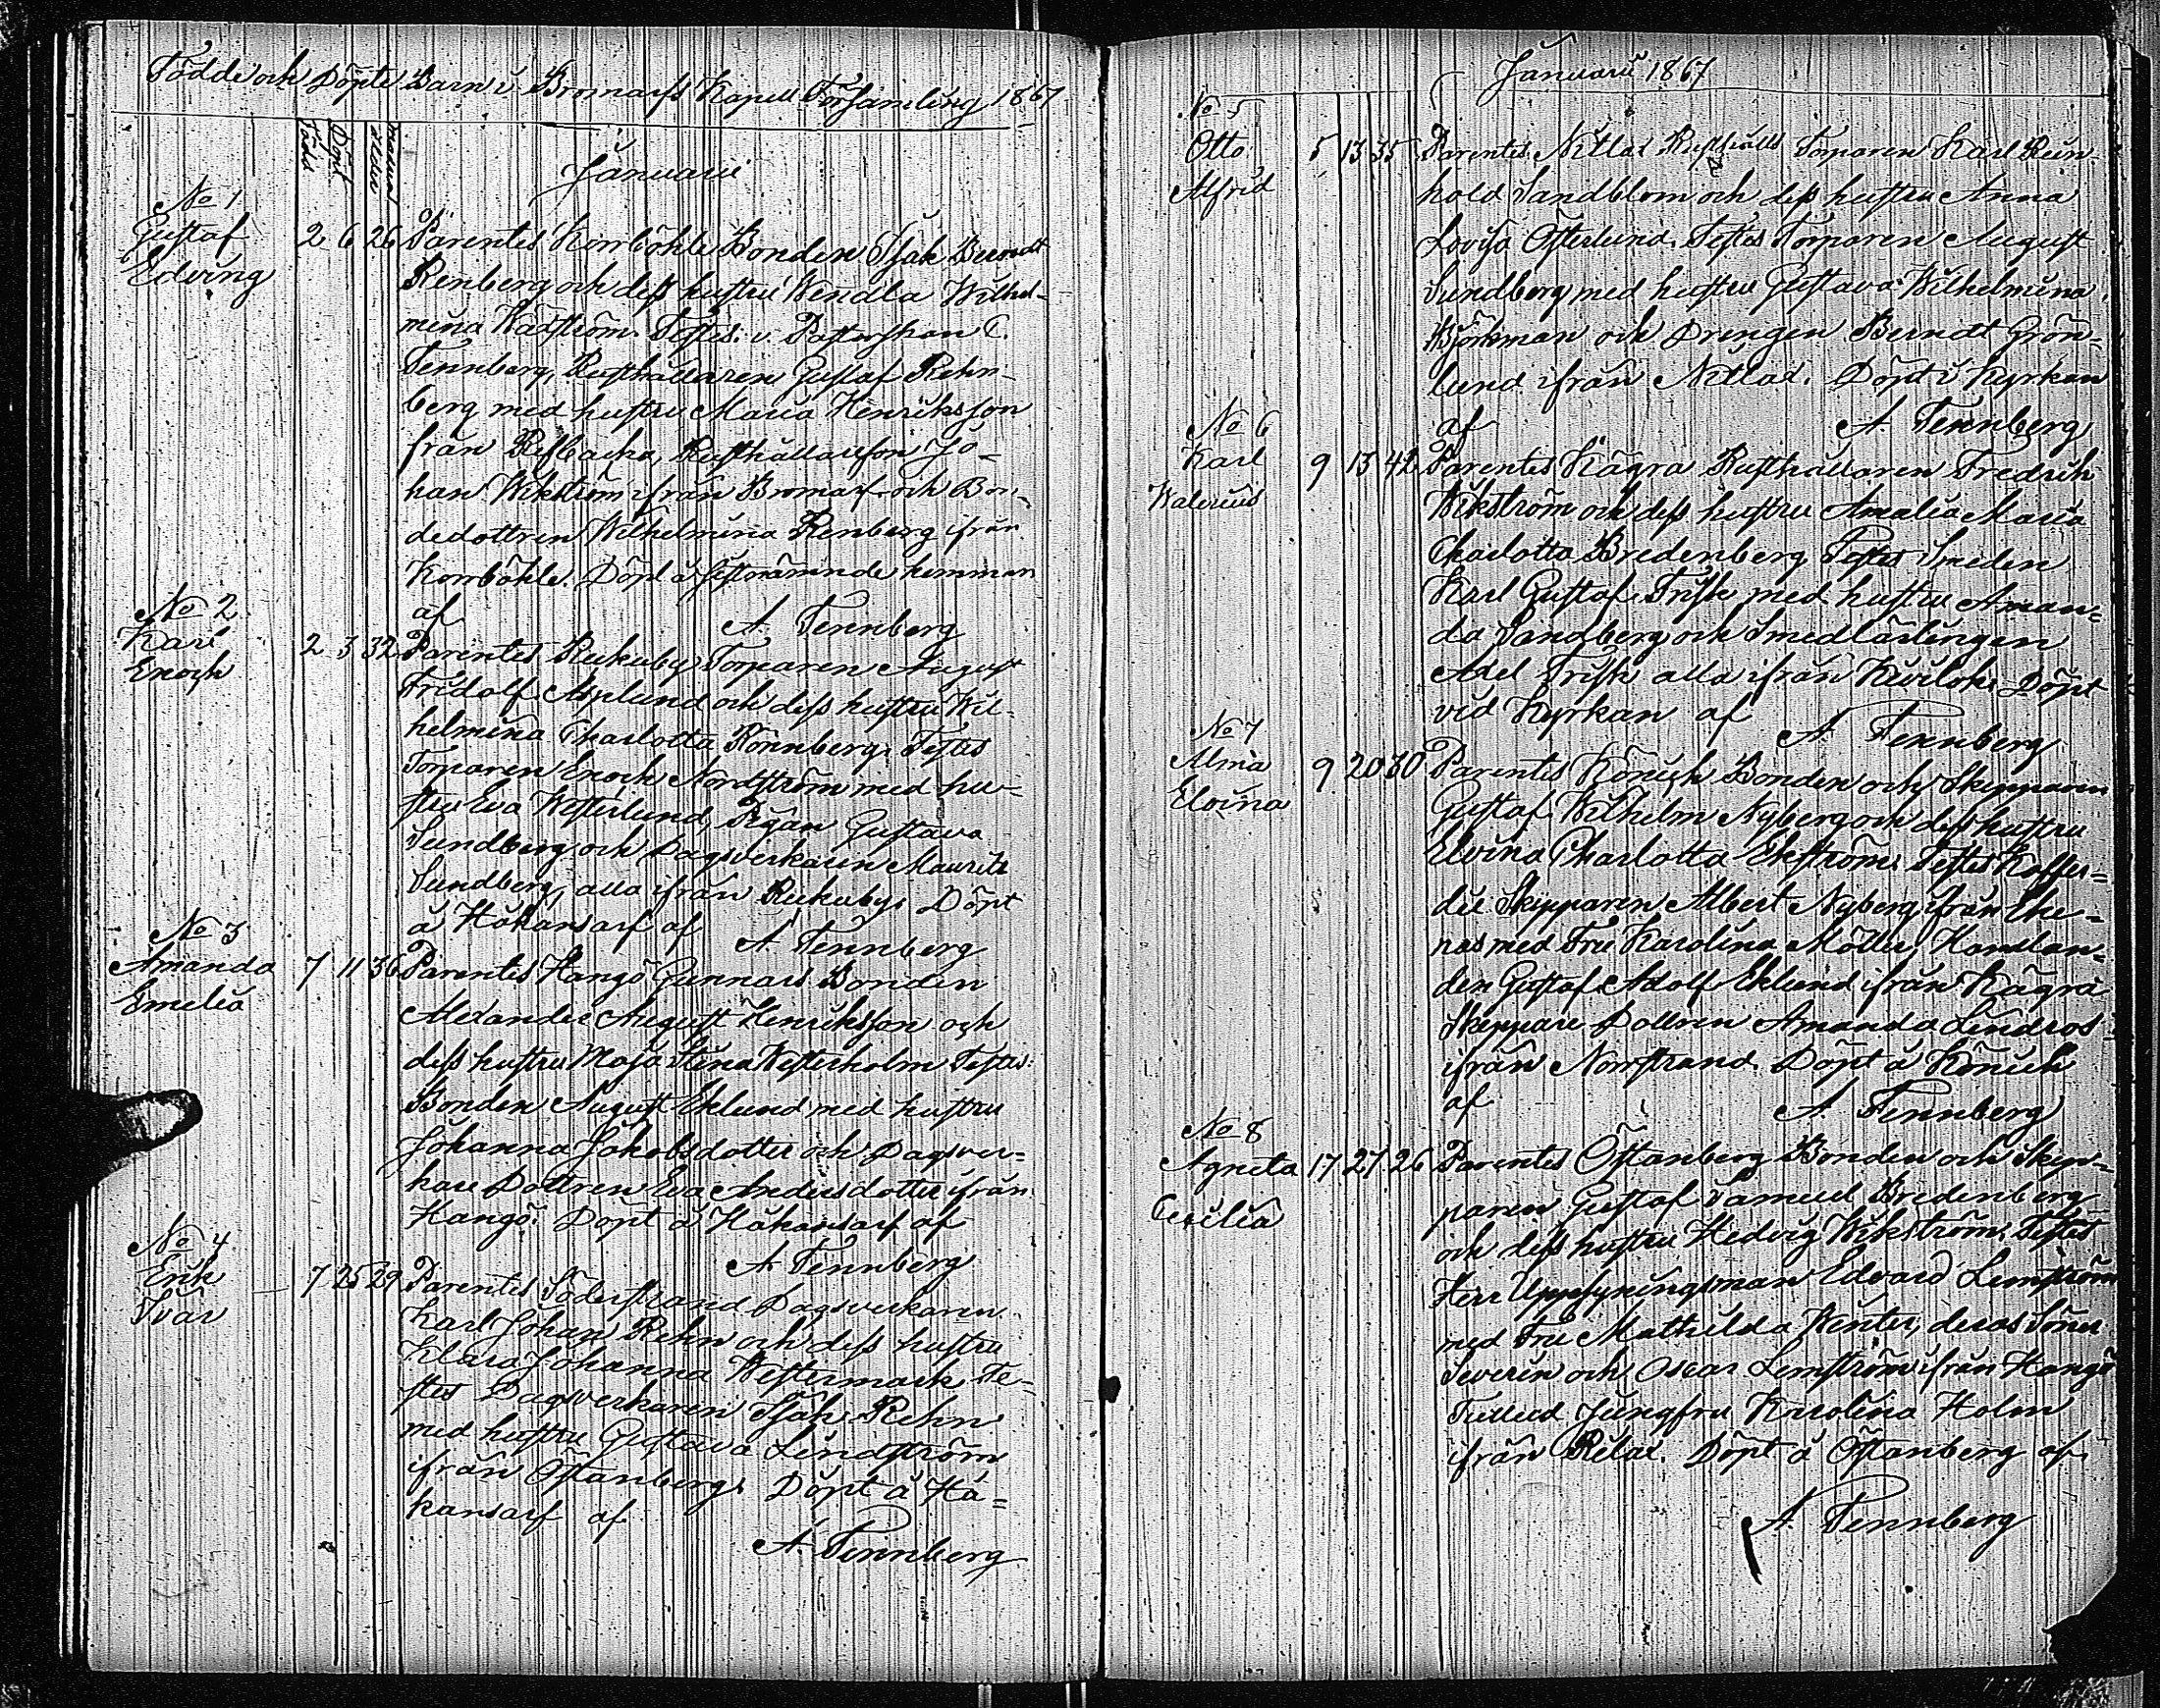 Födde och Döpte Barn i Bromarfs Kapell Församling 1867
Född
Döpt
Modrens ålder
Januarii
No 1
Gustaf 2 6 26 Parentes Korrböhle Bonden Isak Berndt
Edving
Renberg och dess hustru Wendla Wilhel-
mina Wadström. Testes: v. Pastorskan C.
Fennberg, Rusthållaren Gustaf Rehn-
berg med hustru Maria Henriksson
från Refbacka, Rusthållaresson Jo-
han Wikström ifrån Bromarf och Bon-
dedottren Wilhelmina Renberg ifrån
Korrböhle. Döpt å sistnämnde hemman
af A. Fennberg
No 2
Karl 2 3 32 Parentes Rukuby Torparen August
Enoch
Fridolf Asplund och dess hustru Wil-
helmina Charlotta Rönnberg. Testes
Torparen Enoch Nordström med hu-
stru Eva Westerlund, Pigan Gustava
Sundberg och Dagsverkarin Mauritz
Sundberg, alla ifrån Rukuby. Döpt
å Håkansarf af A. Fennberg
No 3
Amanda 7 11 36 Parentes Hangö Gunnars Bonden
Emelia
Alexander August Henriksson och
dess hustru Maja Stina Westerholm Testes:
Bonden August Eklund med hustru
Johanna Jakobsdotter och Dagsver-
kare Dottren Eva Andersdotter ifrån
Hangö. Döpt å Håkansarf af
A. Fennberg
No 4
Erik 7 25 29 Parentes Söderstrand Dagsverkaren
Ivar
Karl Johan Rehn och dess hustru
Klara Johanna Westermark Te-
stes Dagsverkaren Isak Rehn
med hustru Gustava Lindström
ifrån Östanberg. Döpt å Hå-
kansarf af
A. Fennberg
Januarii 1867
No 5
Otto 5 13 35 Parentes Nitlax Rusthålls Torparen Karl Rein-
Alfrid
hold Sandblom och dess hustru Anna
Lovisa Österlund. Testes Torparen August
Sundberg med hustru Gustava Wilhelmina
Björkman och Drengen Berndt Grön-
lund ifrån Nitlax. Döpt i Kyrkan
af A. Fennberg
No 6
Karl 9 13 42 Parentes Kägra Rusthållaren Fredrik
Valerius
Wikström och dess hustru Amalia Maria
Charlotta Bredenberg Testes Smeden
Karl Gustaf Frisk med hustru Aman-
da Sandberg och Smedlärlingen
Axel Frisk alla ifrån Kivilok. Döpt
vid Kyrkan af A. Fennberg
No 7
Alma 9 20 30 Parentes Könick Bonden och Skepparen
Elvina
Gustaf Wilhelm Nyberg och dess hustru
Elvina Charlotta Ekström. Testes Koffer-
die Skepparen Albert Nyberg ifrån Eke-
näs med Fru Karolina Möller, Konstan-
den Gustaf Adolf Eklund ifrån Kägra
Skeppare Dottren Amanda Lindros
ifrån Norrstrand. Döpt å Könick
af A. Fennberg
No 8
Agneta 17 27 26 Parentes Östanberg Bonden och Skep-
Cecilia
paren Gustaf Samuel Bredenberg
och dess hustru Hedvig Wikström. Testes
Herr Uppsyningsman Edvard Lemström
med Fru Mathilda Winter, deras Söner
Severin och Oscar Lemström ifrån Hangö
Tullud Jungfru Karolina Holm
ifrån Rilax. Döpt å Östanberg af
A. Fennberg